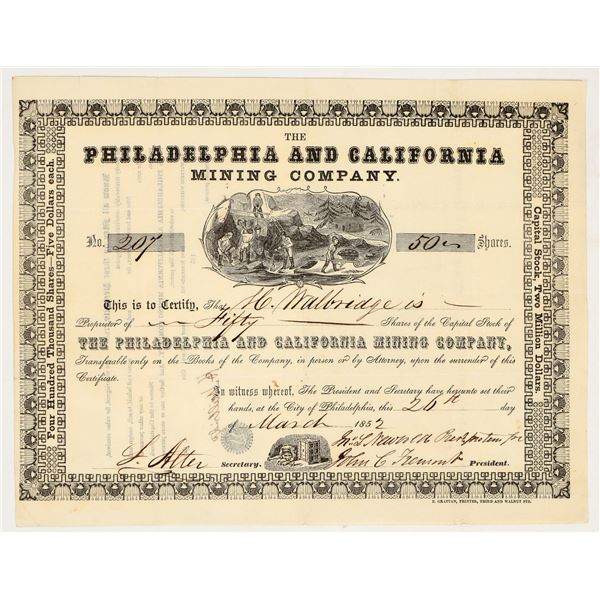 THE
PHILADELPHIA AND CALIFORNIA
MINING COMPANY.
Four Hundred Thousand Shares—Five Dollars each.
Capital Stock, Two Million Dollars.
No. 207 50 Shares.
This is to Certify, That H. Walbridge is
Proprietor of Fifty Shares of the Capital Stock of
THE PHILADELPHIA AND CALIFORNIA MINING COMPANY,
Transferable only on the Books of the Company, in person or by Attorney, upon the surrender of this
Certificate.
In witness whereof, The President and Secretary have hereunto set their
hands, at the City of Philadelphia, this 26th day
of March 1852
Secretary. John C Fremont President.
E. GRATTAN, PRINTER, THIRD AND WALNUT STS.